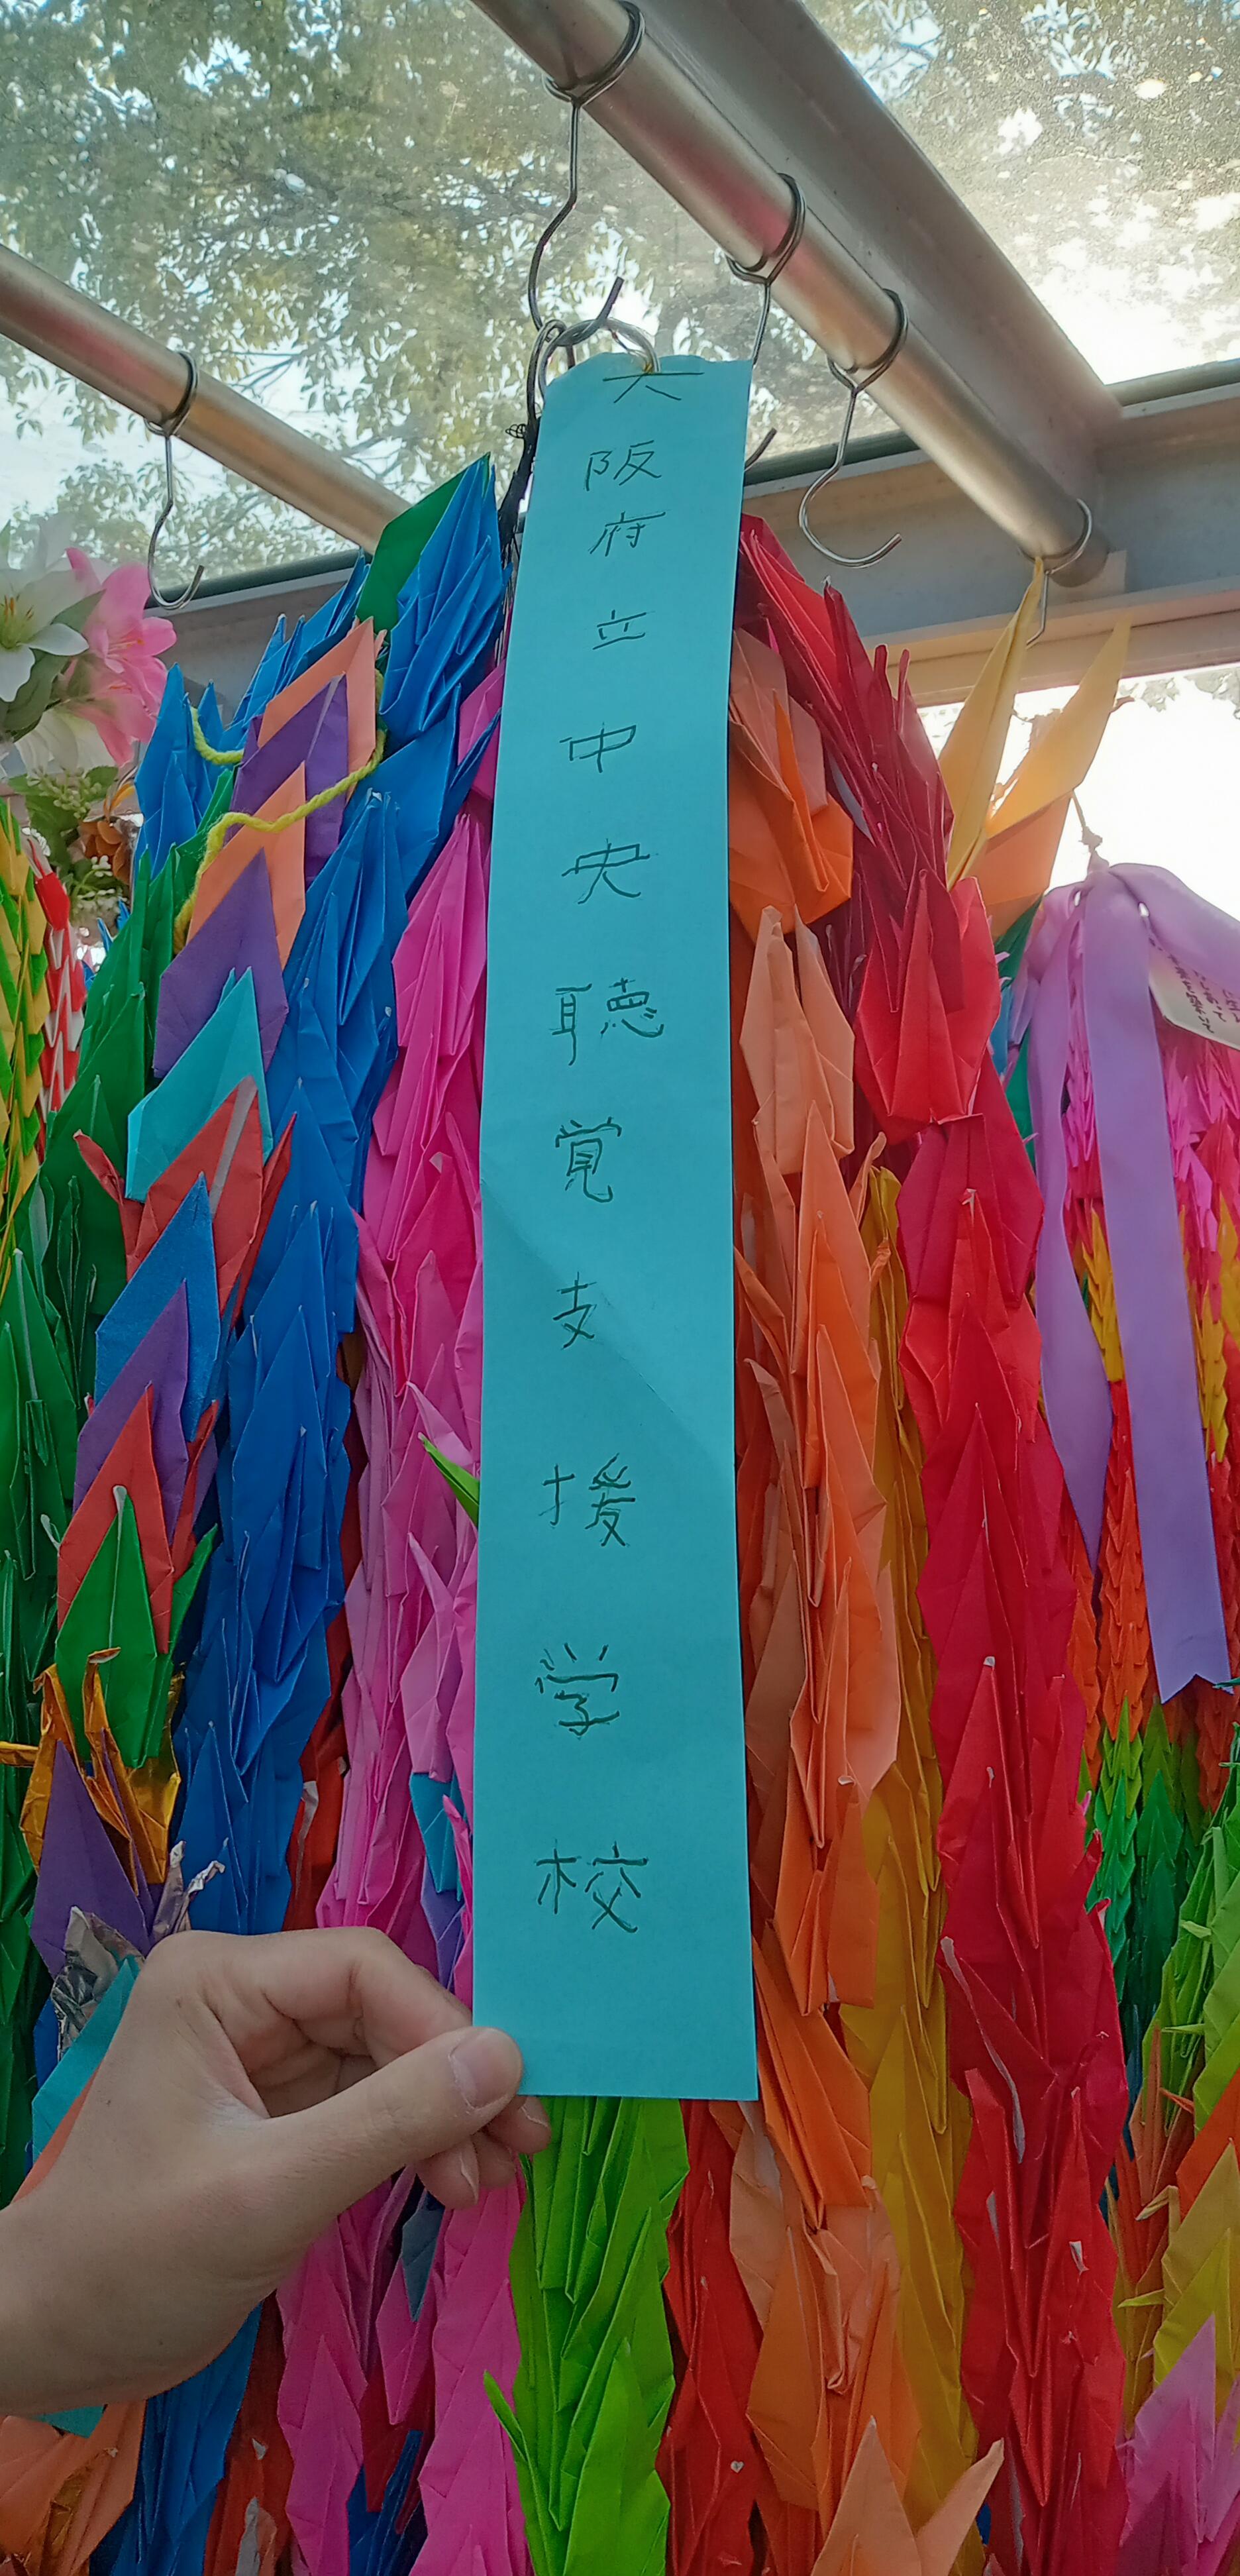 大阪府立中央聴覚支援学校